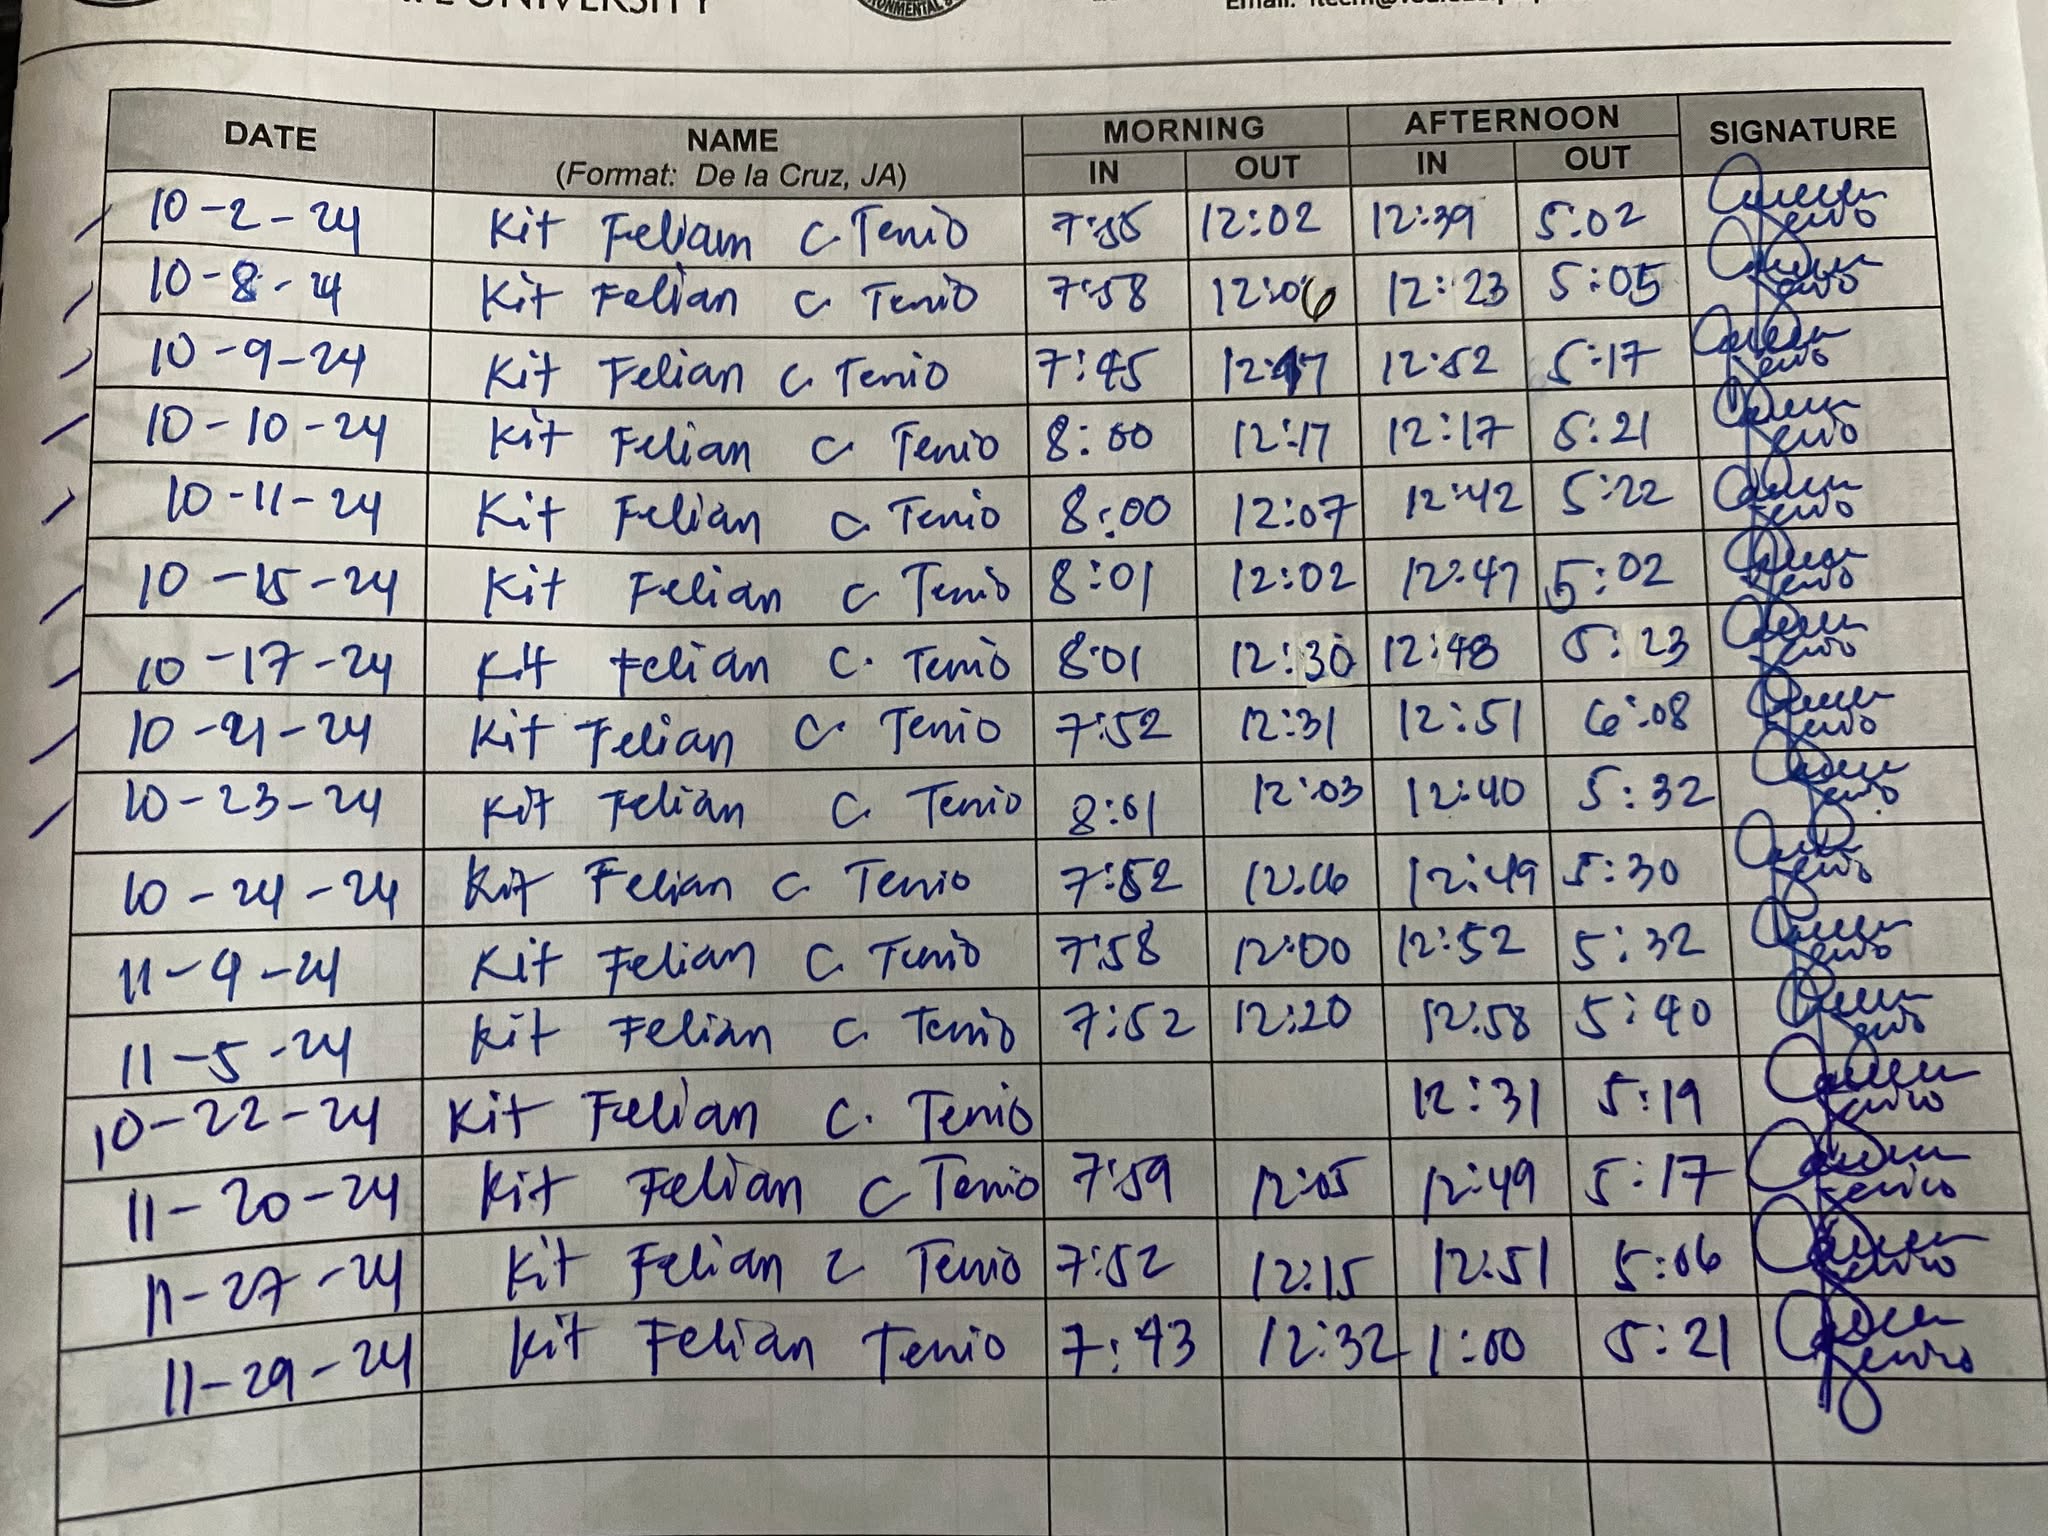 UNIVERSITY
DATE NAME MORNING AFTERNOON SIGNATURE
(Format: De la Cruz, JA) IN OUT IN OUT
10-2-24 Kit Felian C. Tenio 7:55 12:02 12:39 5:02
10-8-24 Kit Felian C Tenio 7:58 12:06 12:23 5:05
10-9-24 Kit Felian C. Tenio 7:45 12:17 12:52 5:17
10-10-24 Kit Felian C Tenio 8:00 12:17 12:17 5:21
10-11-24 Kit Felian C Tenio 8:00 12:07 12:42 5:22
10-15-24 Kit Felian C Tenio 8:01 12:02 12:47 5:02
10-17-24 Kit Felian C. Tenio 8:01 12:30 12:48 5:23
10-21-24 Kit Felian C. Tenio 7:52 12:31 12:51 6:08
10-23-24 Kit Felian C. Tenio 8:01 12:03 12:40 5:32
10-24-24 Kit Felian C. Tenio 7:52 12:06 12:49 5:30
11-4-24 Kit Felian C. Tenio 7:58 12:00 12:52 5:32
11-5-24 Kit Felian C. Tenio 7:52 12:20 12:58 5:40
10-22-24 Kit Felian C. Tenio 12:31 5:19
11-20-24 Kit Felian C Tenio 7:59 12:05 12:49 5:17
11-27-24 Kit Felian C Tenio 7:52 12:15 12:51 5:06
11-29-24 Kit Felian Tenio 7:43 12:32 1:00 5:21